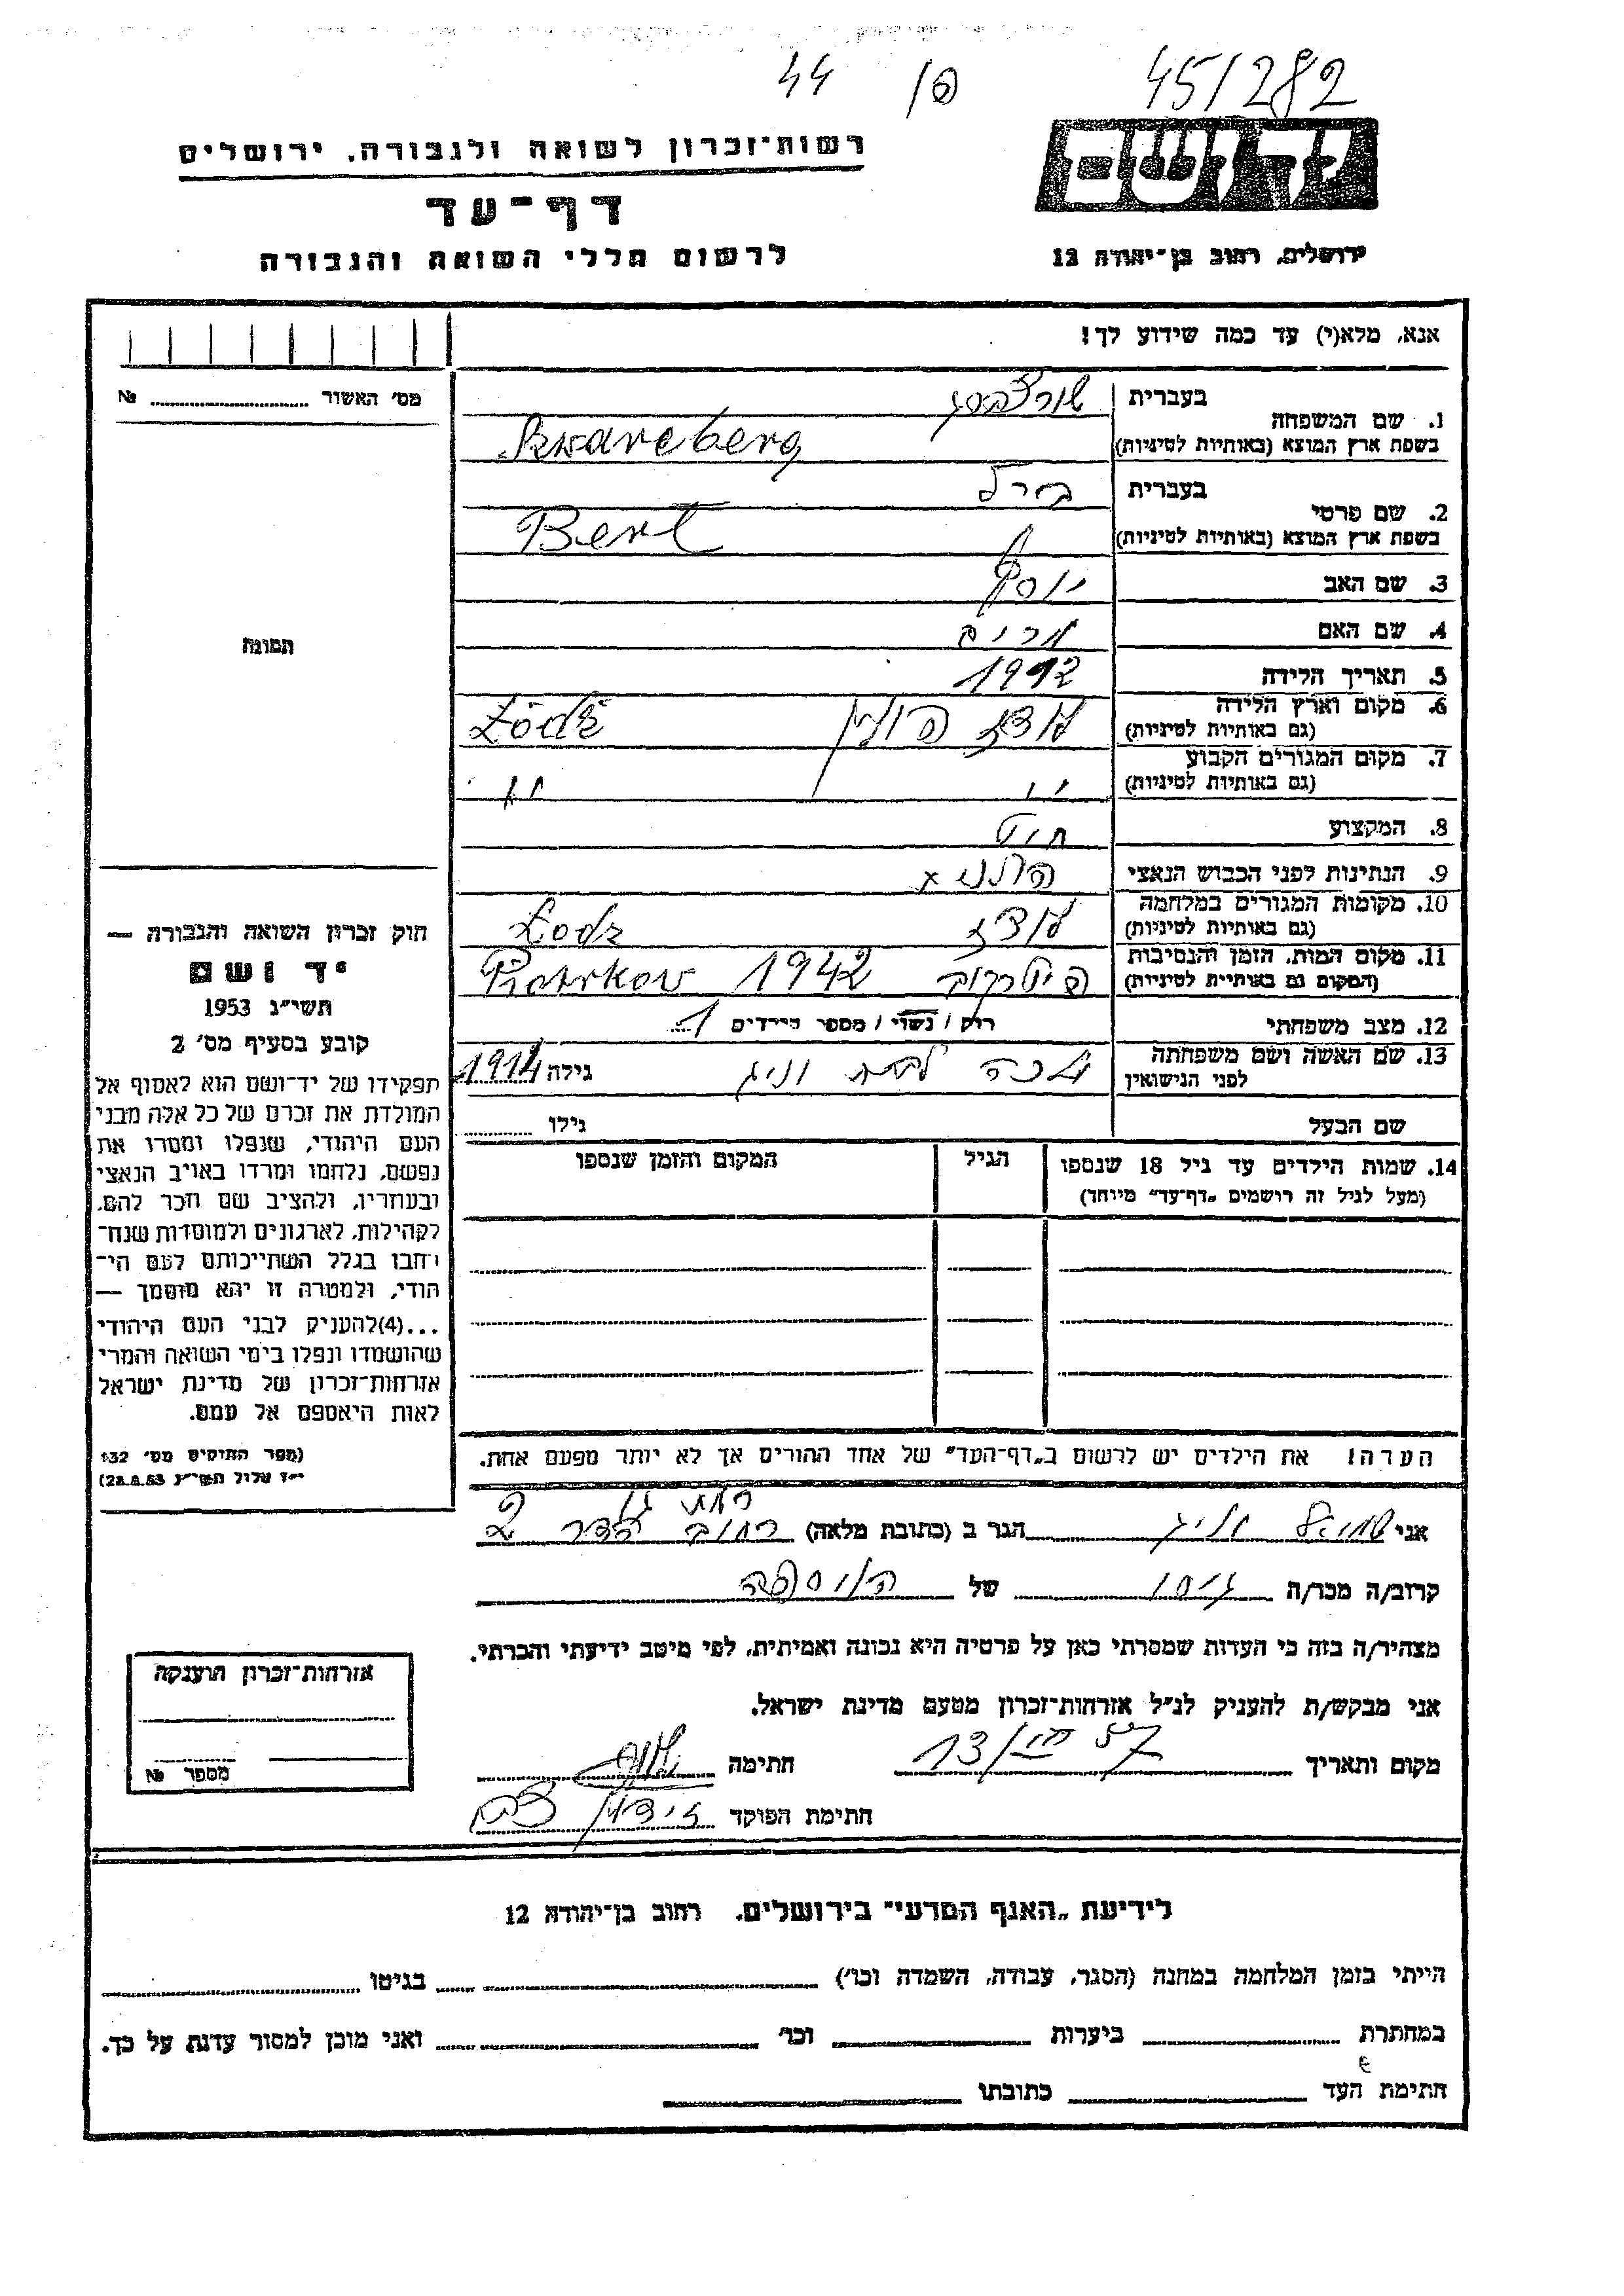 45/282
פ/
44
רשות-זכרון לשואה ולגבורה, ירושלים
דף-עד
לרשום חללי השואה והגבורה
ירושלים, רחוב בן-יהודה 12
אנא, מלא(י) עד כמה שידוע לך!
מס׳ האשור № 
1. שם המשפחה
בעברית שורצברג
בשפת ארץ המוצא (באותיות לטיניות)
2. שם פרטי
בעברית ברל
בשפת ארץ המוצא (באותיות לטיניות) Berl
3. שם האב יוסף
4. שם האם מרים
5. תאריך הלידה 1912
6. מקום וארץ הלידה לודז פולין Łódź
(גם באותיות לטיניות)
7. מקום המגורים הקבוע
(גם באותיות לטיניות) " "
8. המקצוע חיט
9. הנתינות לפני הכבוש הנאצי
10. מקומות המגורים במלחמה
(גם באותיות לטיניות) לודז Łodz
11. מקום המות, הזמן והנסיבות
(המקום גם באותיות לטיניות) פיוטרקוב 1942 Piotrkow
12. מצב משפחתי רווק / נשוי / מספר הילדים 1
13. שם האשה ושם משפחתה
לפני הנישואין לבית וניג גילה 1914
שם הבעל גילו
14. שמות הילדים עד גיל 18 שנספו
(מעל לגיל זה רושמים „דף-עד״ מיוחד)
הגיל
המקום והזמן שנספו
הערה! את הילדים יש לרשום ב„דף-העד״ של אחד ההורים אך לא יותר מפעם אחת.
תמונה
חוק זכרון השואה והגבורה —
יד ושם
תשי״ג 1953
קובע בסעיף מס׳ 2
תפקידו של יד-ושם הוא לאסוף אל
המולדת את זכרם של כל אלה מבני
העם היהודי, שנפלו ומסרו את
נפשם, נלחמו ומרדו באויב הנאצי
ובעוזריו, ולהציב שם וזכר להם,
לקהילות, לארגונים ולמוסדות שנח-
רבו בגלל השתייכותם לעם הי-
הודי, ולמטרה זו יהא מוסמך —
...(4) להעניק לבני העם היהודי
שהושמדו ונפלו בימי השואה והמרי
אזרחות-זכרון של מדינת ישראל
לאות היאספם אל עמם.
(ספר החוקים מס׳ 132
י״ז אלול תשי״ג 28.8.53)
רמת גן
אני שמואל וניג הגר ב (כתובת מלאה) רחוב הדר 2
קרוב/ה מכר/ה גיסו של הנוספה
מצהיר/ה בזה כי העדות שמסרתי כאן על פרטיה היא נכונה ואמיתית, לפי מיטב ידיעתי והכרתי.
אני מבקש/ת להעניק לנ״ל אזרחות-זכרון מטעם מדינת ישראל.
מקום ותאריך 13/III 57 חתימה
חתימת הפוקד
אזרחות-זכרון הוענקה
מספר №
לידיעת „האגף המדעי״ בירושלים, רחוב בן-יהודה 12
הייתי בזמן המלחמה במחנה (הסגר, עבודה, השמדה וכו׳) בגיטו
במחתרת ביערות וכו׳ ואני מוכן למסור עדות על כך.
חתימת העד כתובתו